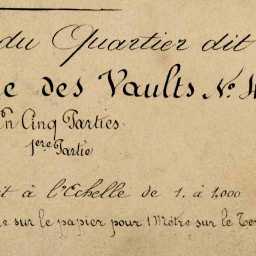 du Quartier dit
e des Vaults No. 4
En Cinq Parties
1ere Partie
t à l'Echelle de 1. à 1,000
e sur le papier pour 1 Mètre sur le Ter